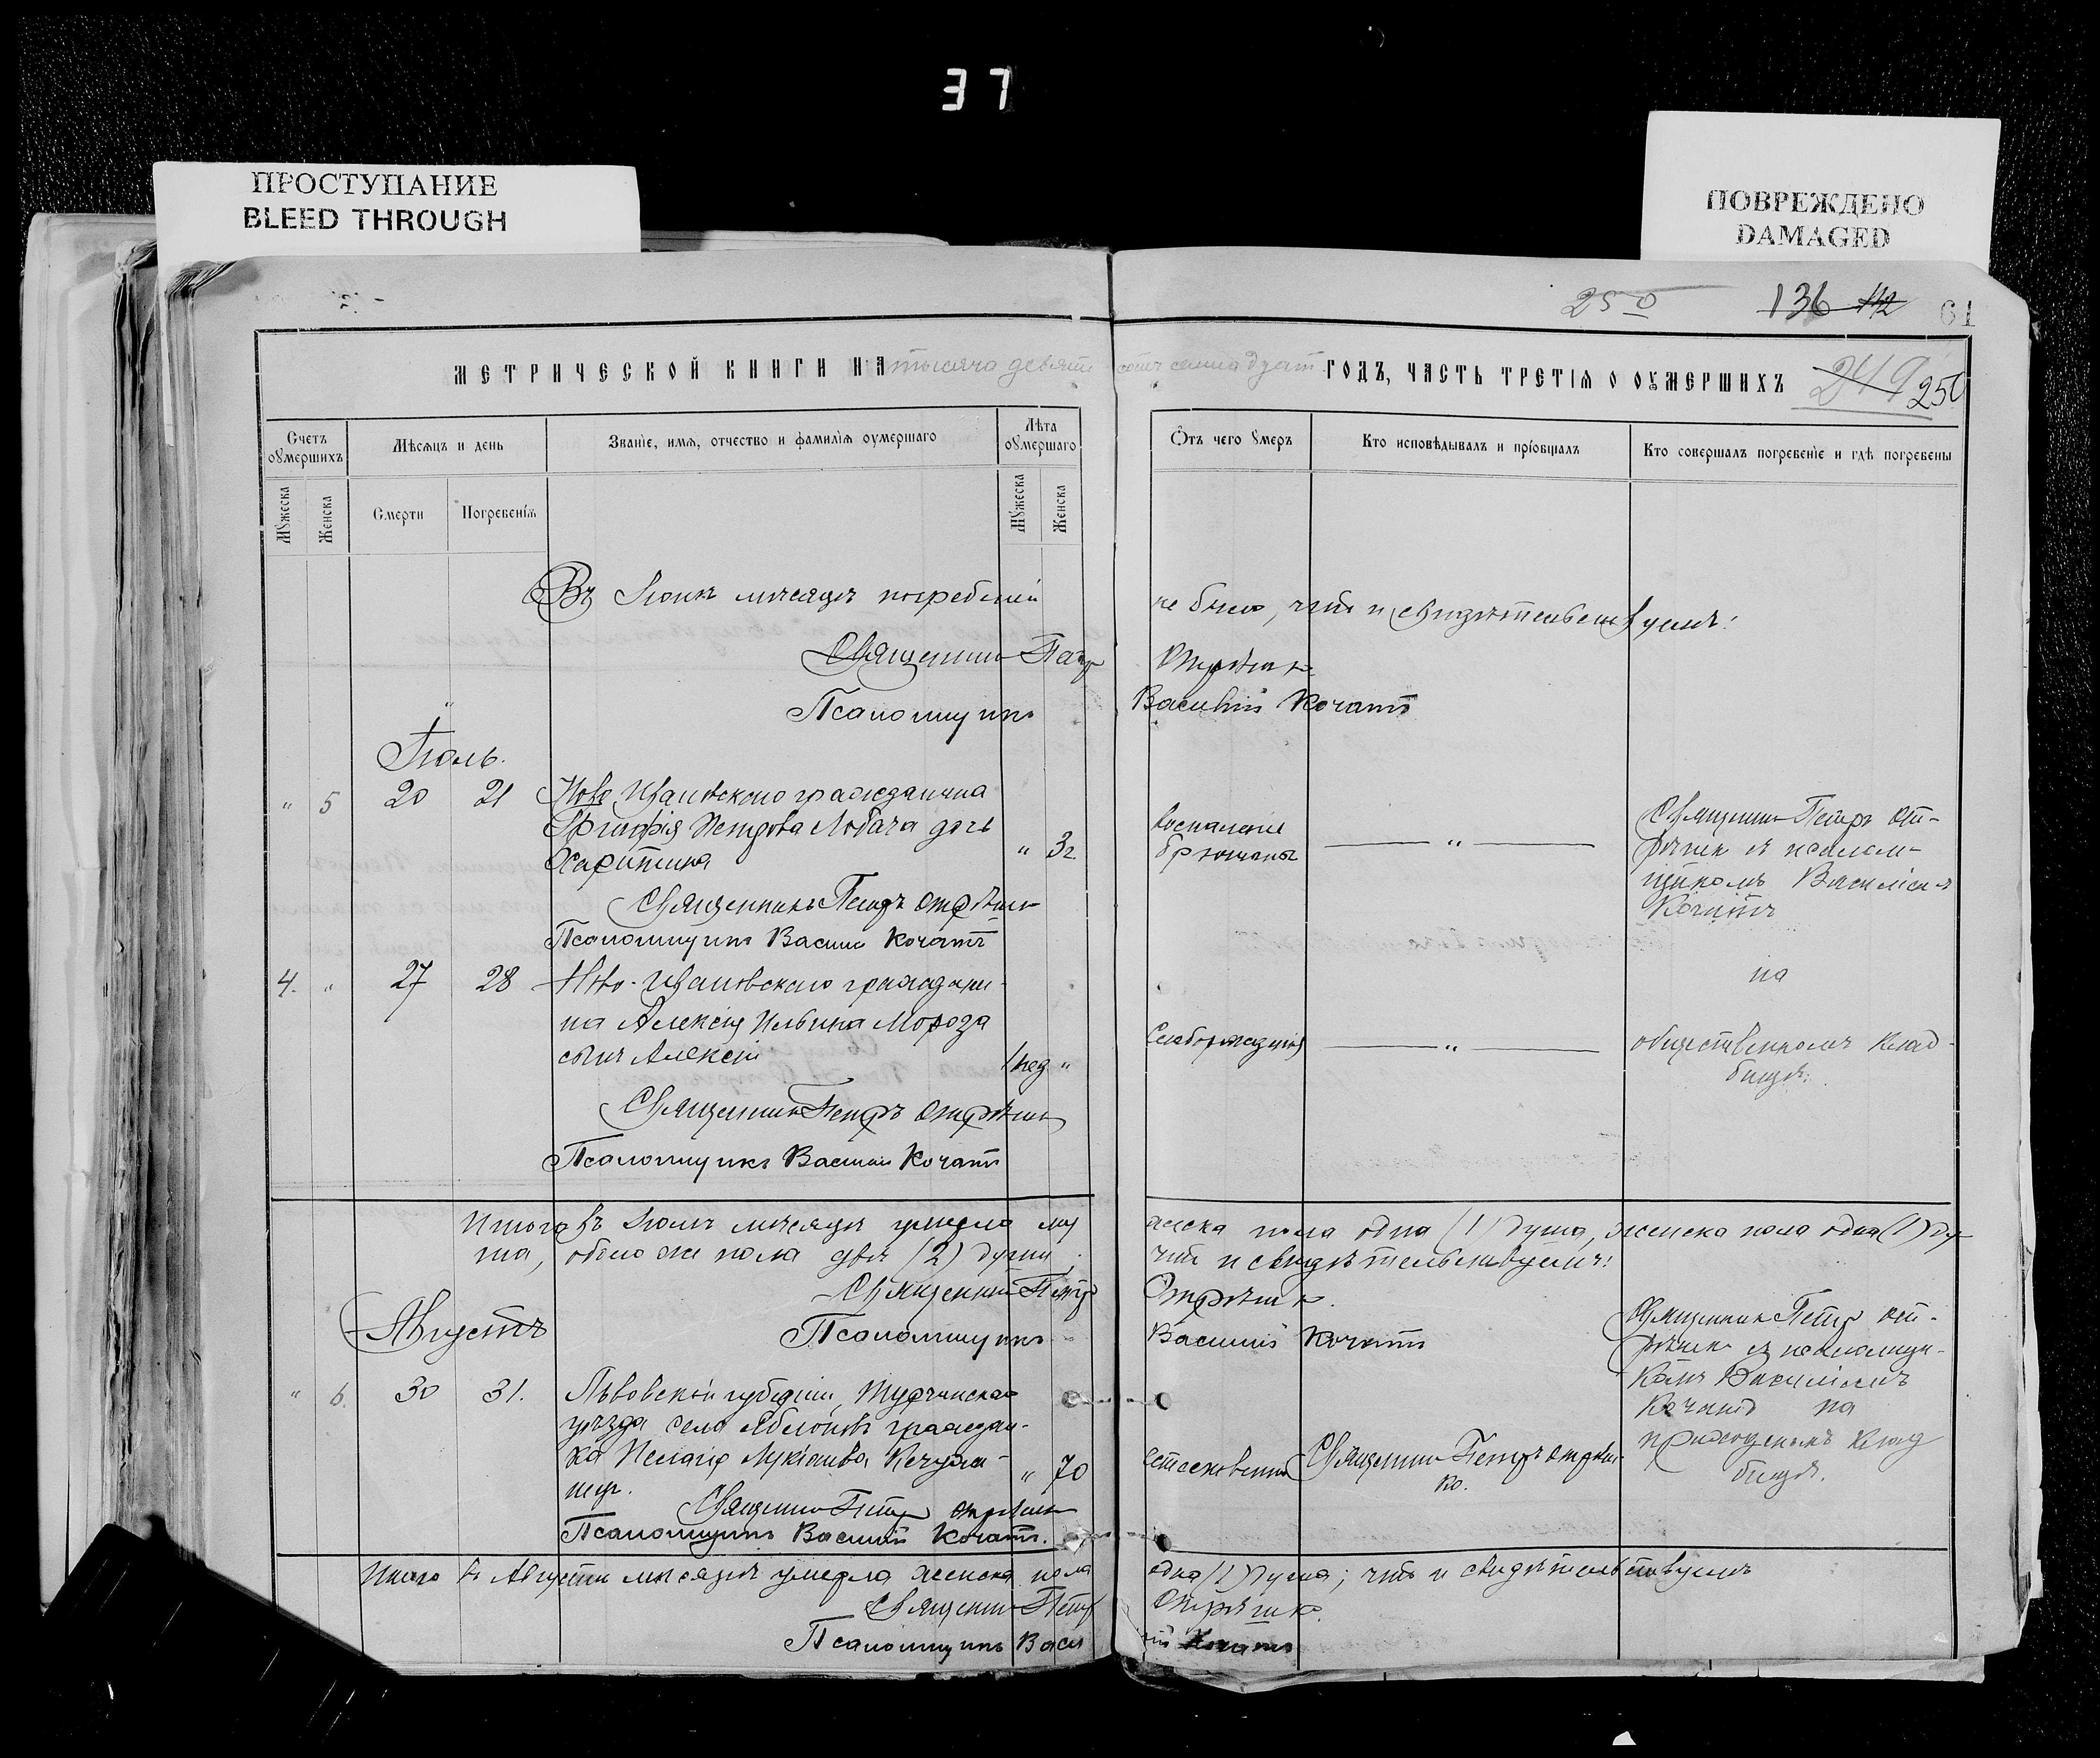 37
ПРОСТУПАНИЕ
BLEED THROUGH
ПОВРЕЖДЕНО
DAMAGED
250 136 112 61
МЕТРИЧЕСКОЙ КНИГИ НА тысяча девять сотъ семнадцат ГОДЪ, ЧАСТЬ ТРЕТІѦ О ОУМЕРШИХЪ 249 250
Счетъ оумершихъ
Мѣсяцъ и день
Званіе, имя, отчество и фамилія оумершаго
Лѣта оумершаго
Ѿтъ чего оумеръ
Кто исповѣдывалъ и пріобщалъ
Кто совершалъ погребеніе и гдѣ погребены
Мужеска
Женска
Смерти
Погребенія
Мужеска
Женска
Въ Іюнѣ мѣсяцѣ погребеній не было, что и свидѣтельствуемъ:
Священникъ Петръ Отрѣшко
Псаломщикъ Василій Кочатъ
Іюль.
" 5 20 21 Ново-Ивановскаго гражданина
Петрова Лобача дочь
Харитина " 3 г.
воспаленіе
брюшины
— " —
Священникъ Петръ От-
рѣшко съ псалом-
щикомъ Василіемъ
Кочатъ
Священникъ Петръ Отрѣшко
Псаломщикъ Василій Кочатъ
4. " 27 28 Ново-Ивановскаго граждани-
на Алексія Ильина Мороза
сынъ Алексій 1 нед "
— " —
на
общественномъ клад-
бищѣ.
Священникъ Петръ Отрѣшко
Псаломщикъ Василій Кочатъ
Итого въ Іюлѣ мѣсяцѣ умерло му жеска пола одна (1) душа, женска пола одна (1) ду-
ша, обоего же пола двѣ (2) души, что и свидѣтельствуемъ:
Священникъ Петръ Отрѣшко.
Августъ
Псаломщикъ Василій Кочатъ
" 6. 30 31. Львовской губерніи,
уѣзда села Яблоновъ граждан-
ка Пелагія " 70
Священникъ Петръ Отрѣш-
ко.
Священникъ Петръ От-
рѣшко съ псаломщи-
комъ Василіемъ
Кочатъ на
приходскомъ клад
бищѣ.
Священникъ Петръ Отрѣшко
Псаломщикъ Василій Кочатъ.
Итого въ Августѣ мѣсяцѣ умерла женска пола одна (1) душа; что и свидѣтельствуемъ
Священникъ Петръ Отрѣшко.
Псаломщикъ Василій Кочатъ